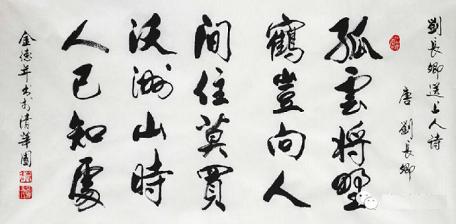 劉長卿送上人诗
唐 劉長卿
孤雲将野
鶴豈向人
間住莫買
沃洲山時
人已知處
金德年书於清華園